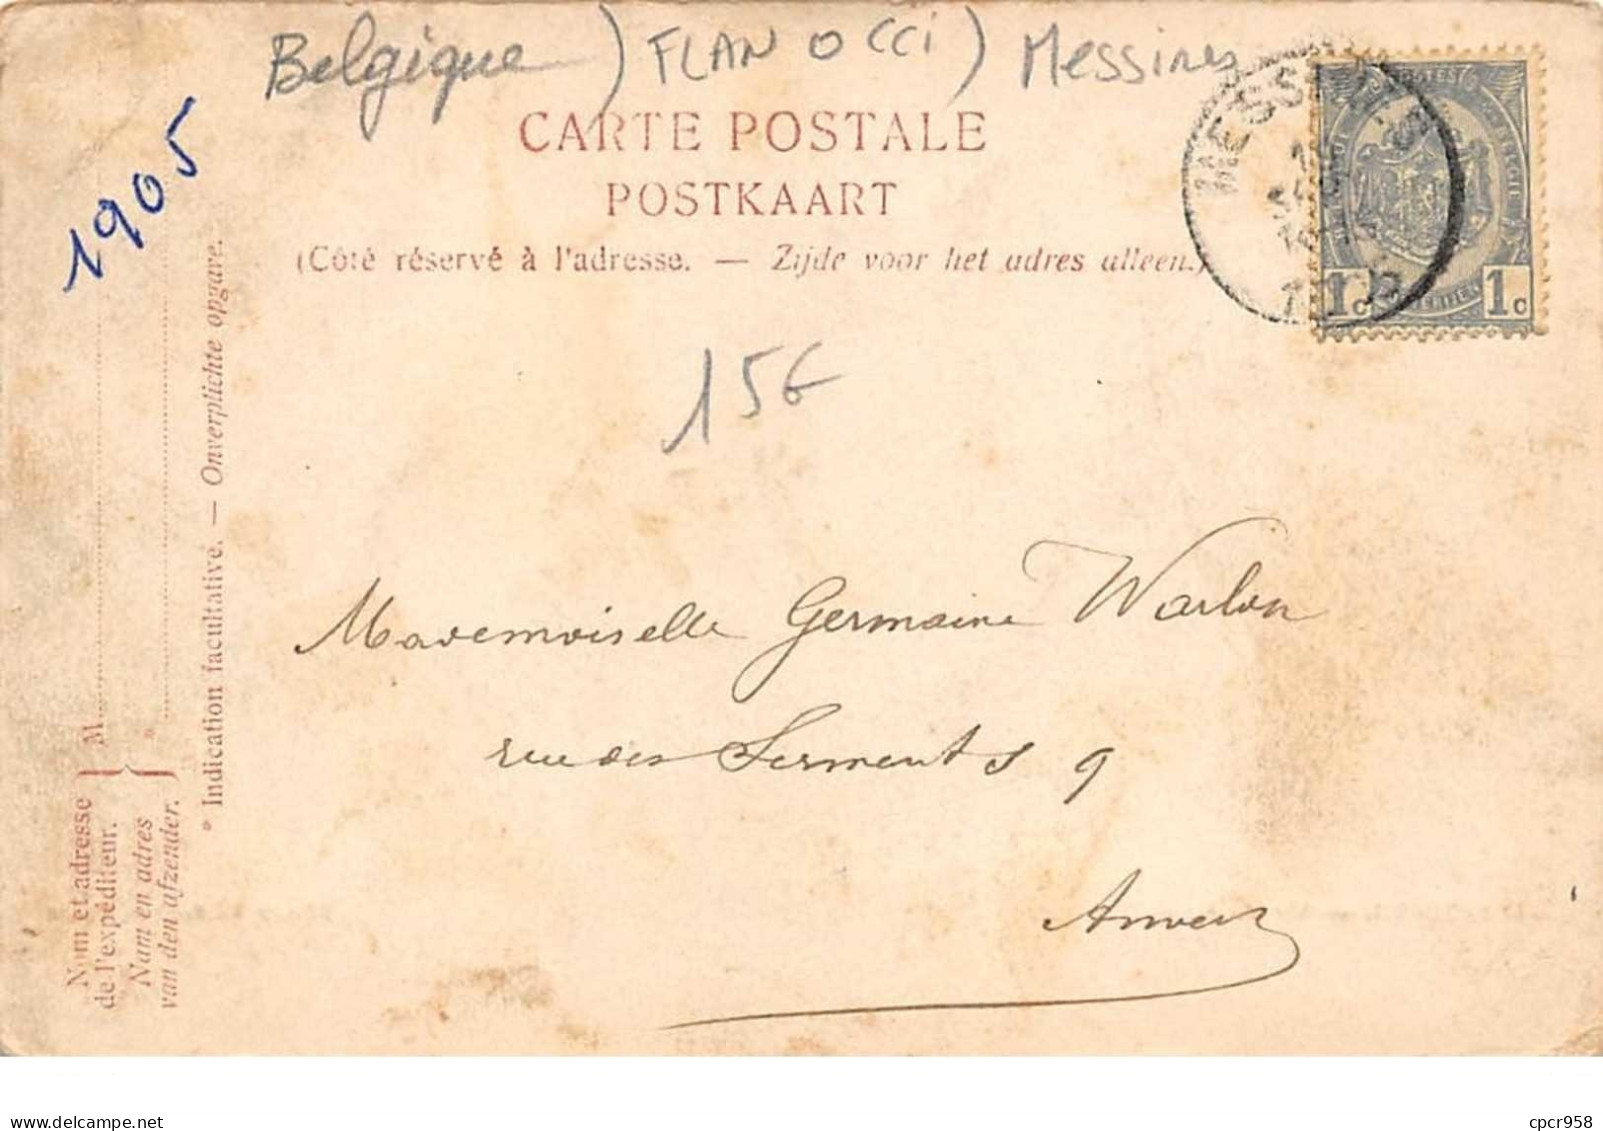 Belgique ) FLAN OCCI ) Messines
1905
CARTE POSTALE
POSTKAART
(Côté réservé à l'adresse. — Zijde voor het adres alleen.)
1c 1c
1905
15€
Mademoiselle Germaine Warlon
rue des Serments 9
Anvers
Nom et adresse
de l'expéditeur.
Nam en adres
van den afzender.
M
*
* Indication facultative. — Onverplichte opgave.
delcampe.net
cpcr958